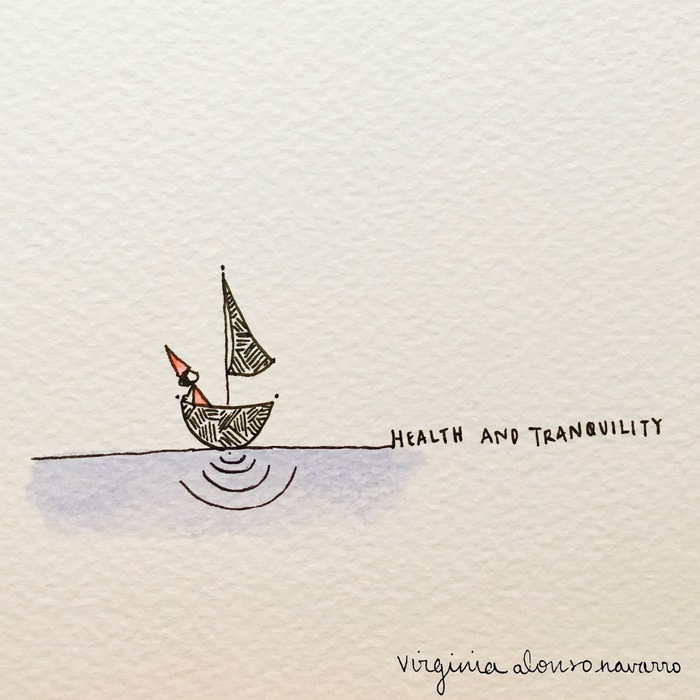 HEALTH AND TRANQUILITY
virginia alonso navarro